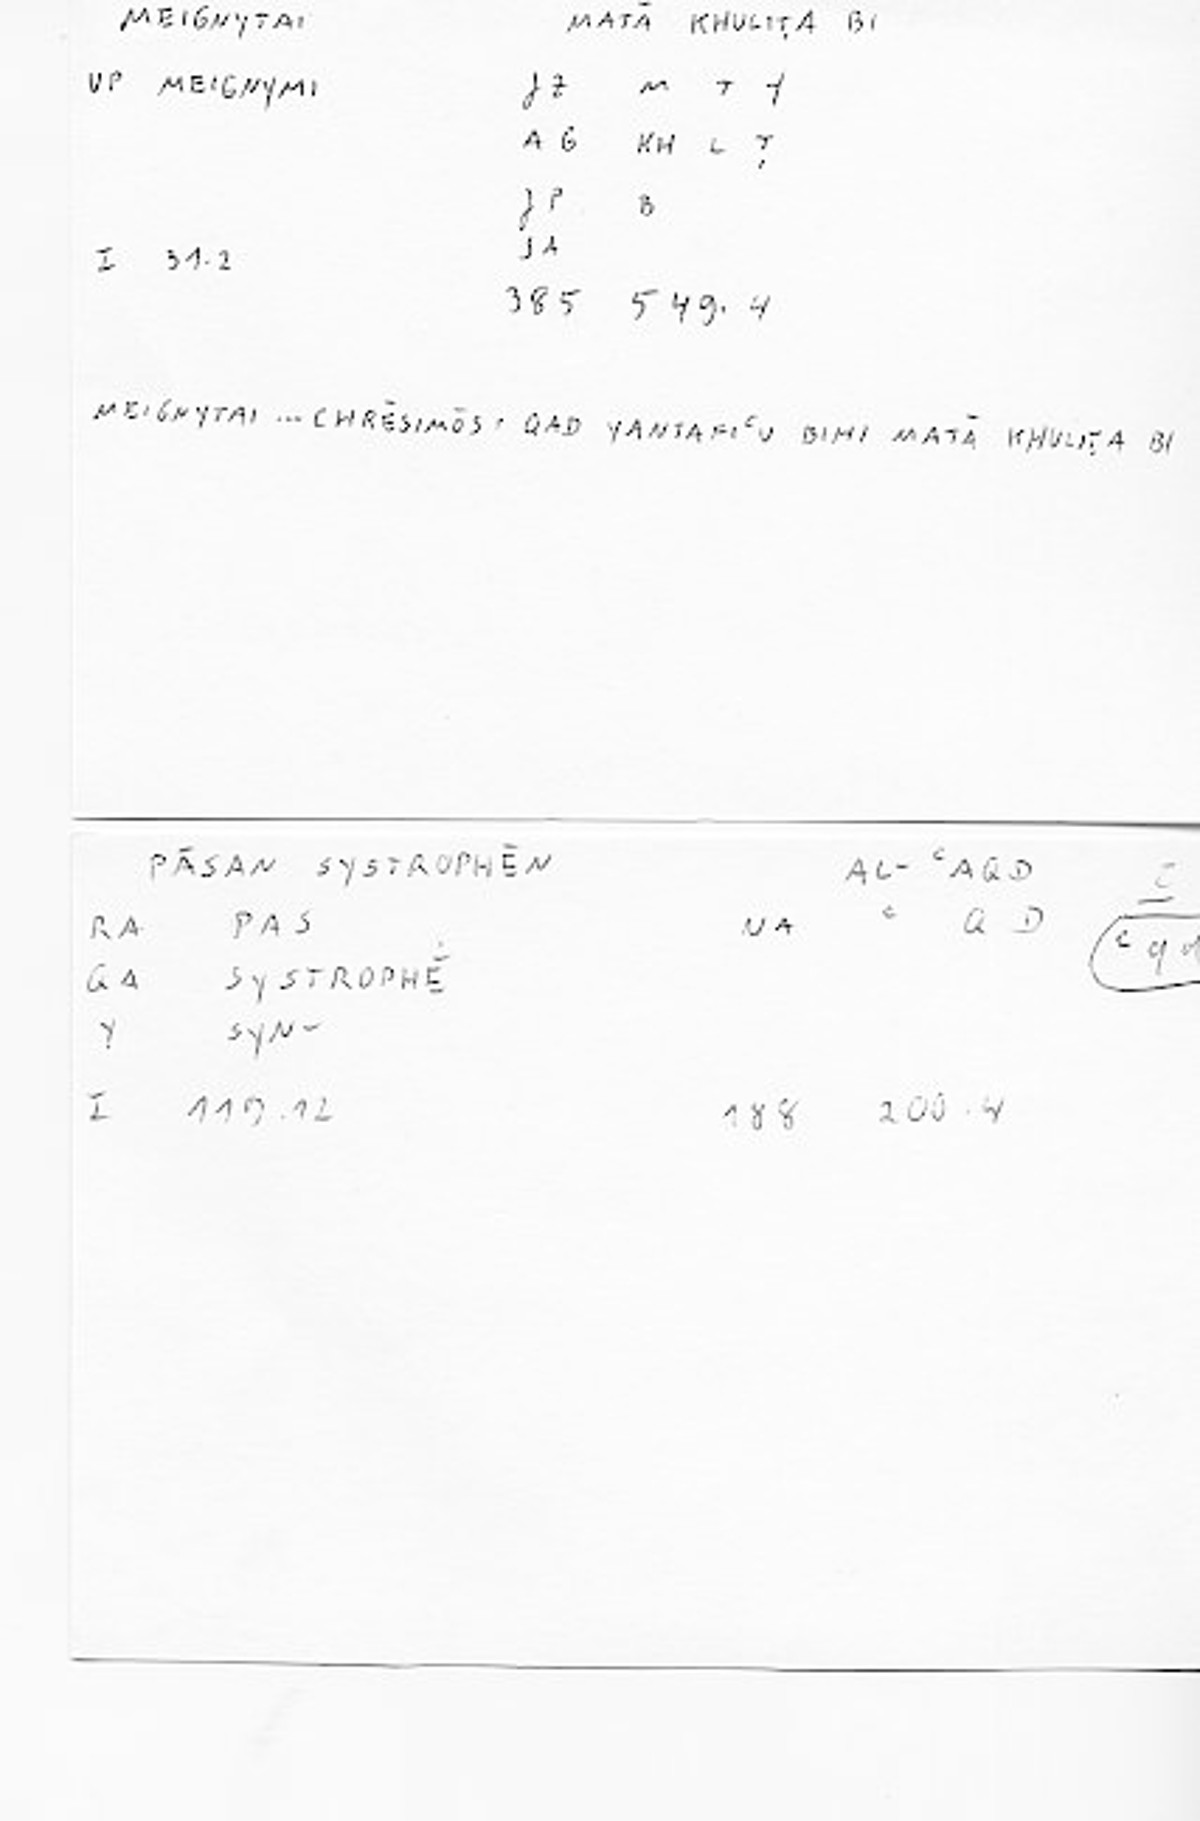 MEIGNYTAI MATĀ KHULIṬA BI
VP MEIGNYMI JZ M T Y
AG KH L Ṭ
JP B
I 31.2 JA
385 549.4
MEIGNYTAI ... CHRĒSIMŌS: QAD YANTAFIᶜU BIHI MATĀ KHULIṬA BI
PĀSAN SYSTROPHĒN AL-ᶜAQD
RA PAS NA ᶜ Q D
GA SYSTROPHĒ
Y SYN-
I 119.12 188 200.4